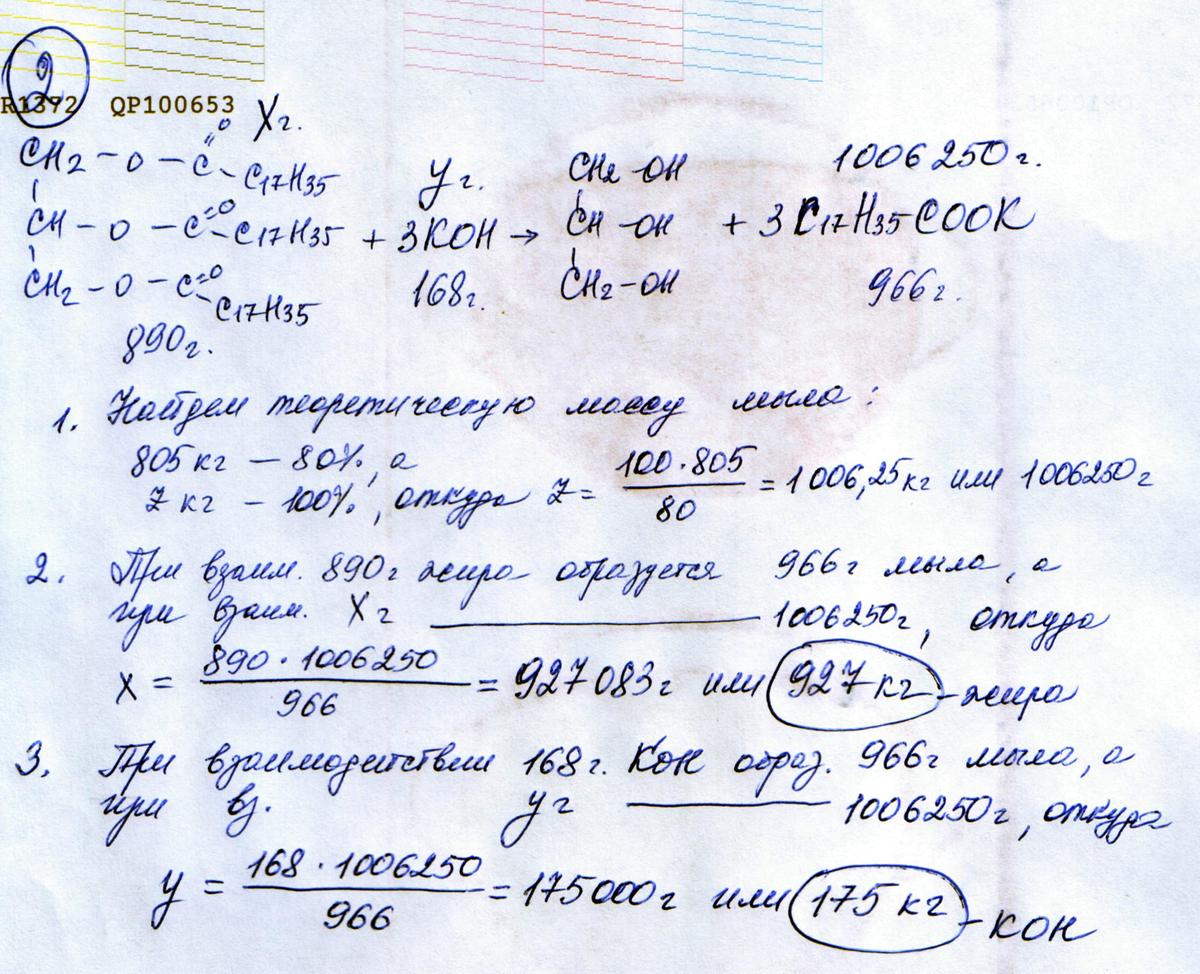 2
R1372 QP100653
Xг.
CH2 - O - C=O - C17H35 yг. CH2 - OH 1006250г.
CH - O - C=O - C17H35 + 3KOH → CH - OH + 3 C17H35COOK
CH2 - O - C=O - C17H35 168г. CH2 - OH 966г.
890г.
1. Найдем теоретическую массу мыла:
805 кг — 80%, а
Z кг — 100%, откуда Z = 100·805 / 80 = 1006,25 кг или 1006250г
2. При взаим. 890г жира образуется 966г мыла, а
при взаим. Xг ——— 1006250г, откуда
X = 890·1006250 / 966 = 927083г или 927 кг - жира
3. При взаимодействии 168г. KOH образ. 966г мыла, а
при вз. yг ——— 1006250г, откуда
y = 168·1006250 / 966 = 175000г или 175 кг - KOH